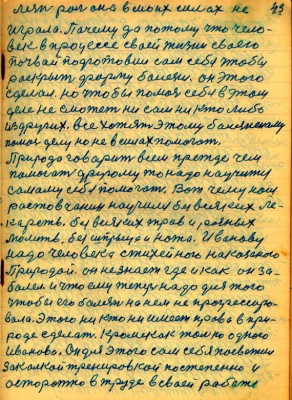 43
лят рогана в моих силах не
играла. Почему да потому что чело-
век в процессе своей жизни своего
почвой подготовил сам себя чтобы
раскрыт форму болезни. он этого
сделал. но чтобы помоч себе в этом
деле не сможет ни сам ни кто либо
из других. все хотят этому больненькому
помоч делу но не в силах помогат.
Природа говорит всем прежде чем
помогат другому то надо научит
самому себе помогат. Вот чему нои
растовчания научили без всяких ле-
карств. без всяких трав и разных
молитв. без шприца и ножа. Иванову
надо человек стихейного наказоного
Природой. он незнает где и как он за-
болел и что ему теперь надо для того
чтобы его болезн на нем не прогрессиро-
вала. Этого ни кто ни имеет права в при-
роде сделат. Кроме как только одного
Иванова. Он для этого сам себя посветил
закалкой тренировкой постепенно и
осторожно в труде в своей работе